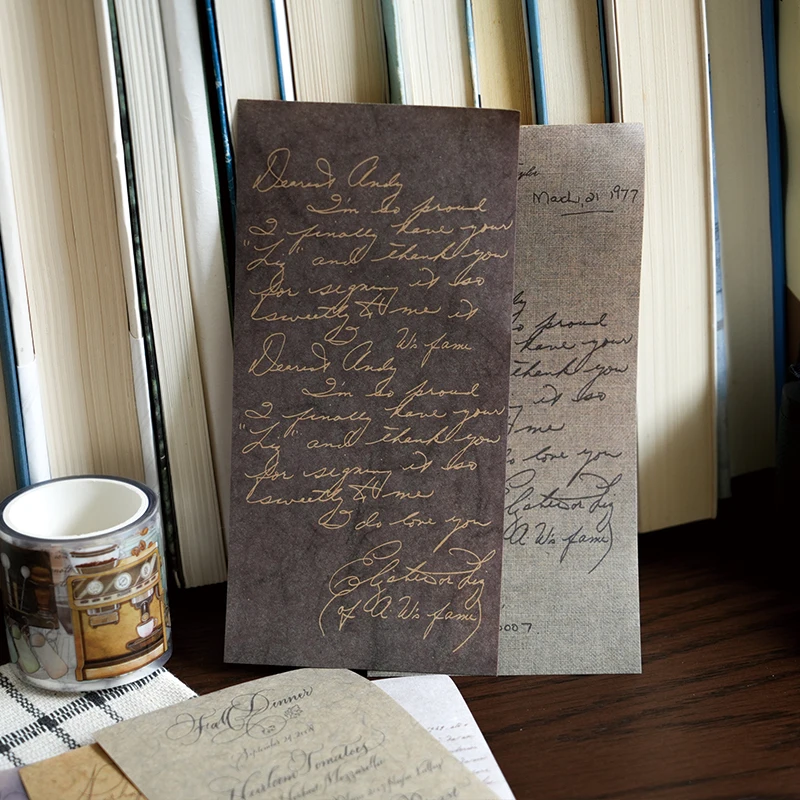 Dearest Andy
I'm so proud
I finally have your
"Liz" and thank you
for signing it so
sweetly to me it
W's fame
Dearest Andy
I'm so proud
I finally have your
"Liz" and thank you
for signing it so
sweetly to me
I do love you
of A W's fame)
Mach, 21 1977
so proud
have your
thank you
it so
me
love you
A W's fame)
Fall Dinner
Heirloom Tomatoes